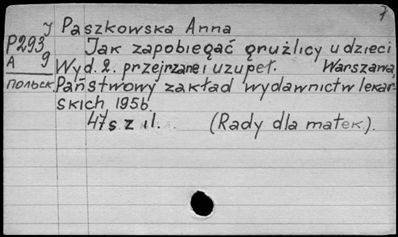 7
J Paszkowska Anna
P293 Jak zapobiegać gruźlicy u dzieci
A 9 Wyd. 2. przejrzane i uzupeł. Warszawa,
польск Państwowy zakład wydawnictw lekar-
skich, 1956.
47s z il. (Rady dla matek).